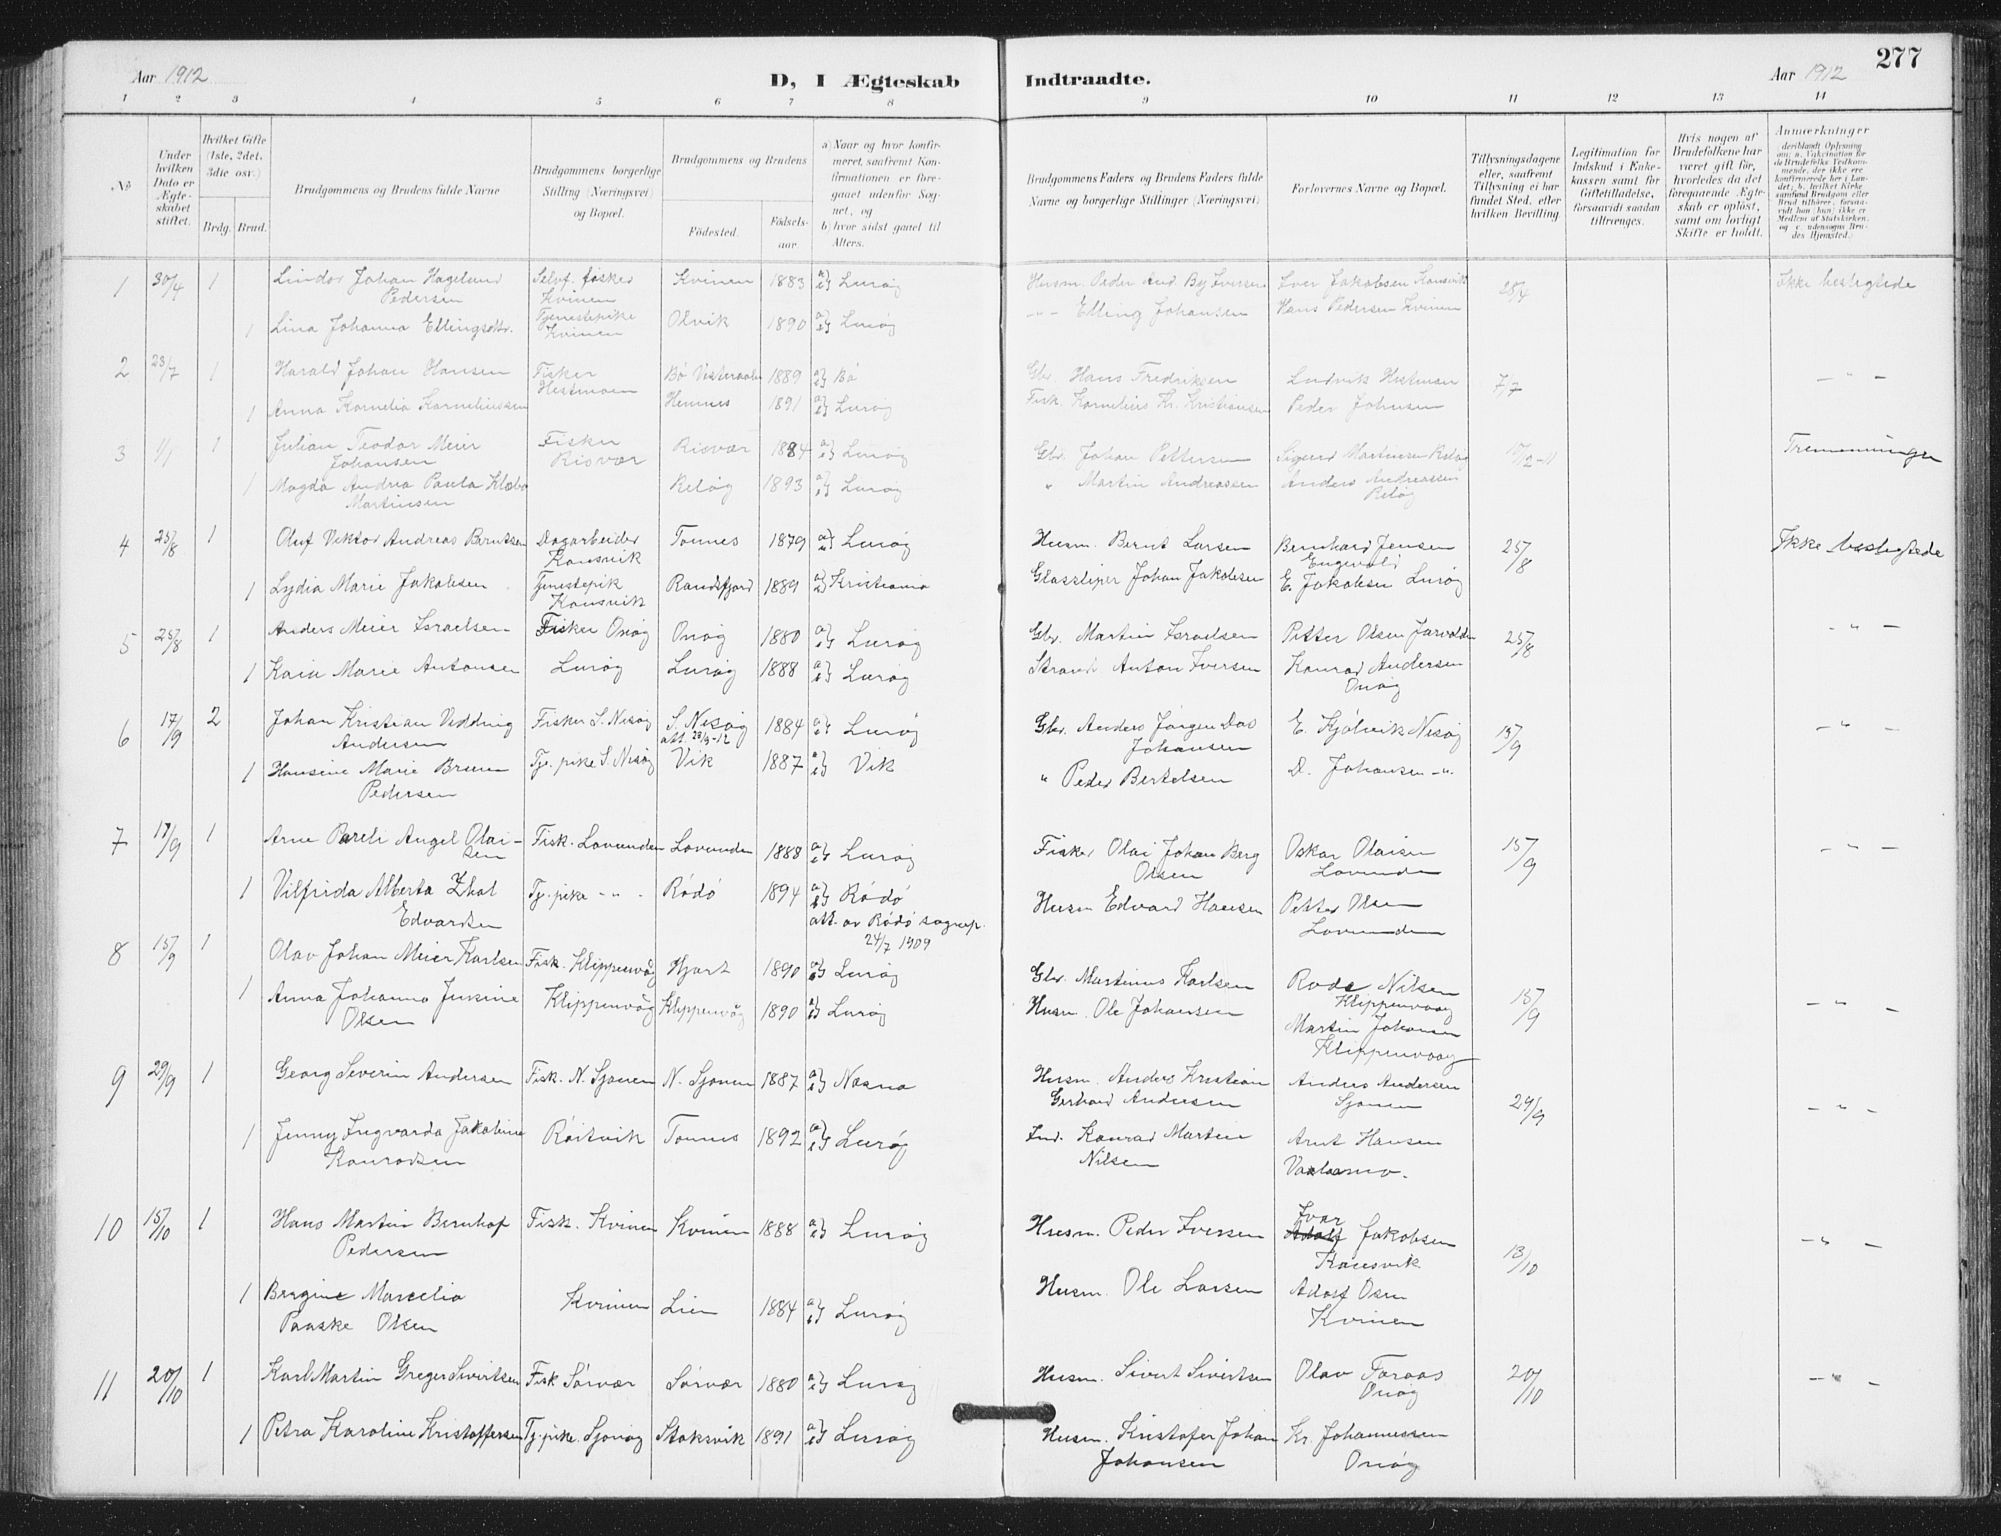 277
Aar 1912 D, I Ægteskab Indtraadte. Aar 1912
1 2 3 4 5 6 7 8 9 10 11 12 13 14
No
Under hvilken Dato er Ægteskabet stiftet.
Hvilket Gifte (1ste, 2det, 3die osv.)
Brdg. Brud.
Brudgommens og Brudens fulde Navne
Brudgommens borgerlige Stilling (Næringsvei) og Bopæl.
Brudgommens og Brudens
Fødested. Fødselsaar.
a) Naar og hvor konfirmeret, saafremt Konfirmationen er foregaaet udenfor Sognet, og
b) hvor sidst gaaet til Alters.
Brudgommens Faders og Brudens Faders fulde Navne og borgerlige Stillinger (Næringsvei)
Forlovernes Navne og Bopæl.
Tillysningsdagene eller, saafremt Tillysning ei har fundet Sted, efter hvilken Bevilling
Legitimation for Indskud i Enkekassen samt for Giftetilladelse, forsaavidt saadan tiltrænges.
Hvis nogen af Brudefolkene har været gift før, hvorledes da det foregaaende Ægteskab er opløst, samt om lovligt Skifte er holdt.
Anmærkninger
1 30/4 1 Lindor Johan Hagelund Selvf. fisker Kvinen 1883 a) b) Lurøy Husm. Peder And. By Iversen Iver Jakobsen Konsvik 28/4 Ikke beslegtede
Pedersen Kvinen
1 Lina Johanna Ellingsdtr. Tjenestepike Olvik 1890 a) b) Lurøy -"- Elling Johansen Hans Pedersen Kvinen
Kvinen
2 28/7 1 Harald Johan Hansen Fisker Bø Vesteraalen 1889 a) b) Bø Gbr. Hans Fredriksen Ludvik Hestmon 7/7 - " -
Hestmoen
1 Anna Kornelia Korneliussen Hemnes 1891 a) b) Lurøy Fisk. Kornelius Kr. Kristiansen Peder Johnsen
3 1/1 1 Julian Teodor Meier Fisker Risvær 1884 a) b) Lurøy Gbr. Johan Pettersen Sigurd Martinsen Reløy 17/12-11 Tremenninger
Johansen Risvær
1 Magda Andrea Paula Klæbo Reløy 1893 a) b) Lurøy " Martin Andreassen Anders Andreassen
Martinsen Reløy
4 25/8 1 Oluf Viktor Andreas Berntsen Dagarbeider Tonnes 1879 a) b) Lurøy Husm. Bernt Larsen Bernhard Jensen 25/8 Ikke beslegtede
Konsvik
1 Lydia Marie Jakobsen Tjenestepik Randsfjord 1889 a) b) Kristiania Glassliper Johan Jakobsen E. Jakobsen Lurøy
Konsvik
5 25/8 1 Anders Meier Israelsen Fisker Onøy Onøy 1880 a) b) Lurøy Gbr. Martin Israelsen Petter Olsen 25/8 - " -
1 Kaia Marie Antonsen Lurøy Lurøy 1888 a) b) Lurøy Strands. Anton Iversen Konrad Andersen
Onøy
6 17/9 2 Johan Kristian Vedding Fisker S. Nesøy S. Nesøy 1884 a) b) Lurøy Gbr. Anders Jørgen Das E. Kjølsvik Nesøy 15/9 - " -
Andersen att 28/9-12 Johansen
1 Hansine Marie Bruun Tj. pike S. Nesøy Vik 1887 a) b) Vik " Peder Bertelsen D. Johansen -"-
Pedersen
7 17/9 1 Arne Pareli Angel Olai- Fisk. Lovunden Lovunden 1888 a) b) Lurøy Fisker Olai Johan Berg Oskar Olaisen 15/9 - " -
sen Olsen Lovunden
1 Vilfrida Alberta Edvardsen Tj. pike - " - Rødø 1894 a) b) Rødø Husm Edvard Hansen Petter Olsen
att. av Rødø sognep. Lovunden
24/7 1909
8 15/9 1 Olav Johan Meier Karlsen Fisk. Klippenvåg Hjart 1890 a) b) Lurøy Gbr. Martinus Karlsen Nilsen 15/9 - " -
Klippenvaag
1 Anna Johanna Jensine Klippenvåg Klippenvåg 1890 a) b) Lurøy Husm. Ole Johansen Martin Johansen
Olsen Klippenvaag
9 29/9 1 Georg Severin Andersen Fisk. N. Sjonen N. Sjonen 1887 a) b) Nesna Husm. Anders Kristian Anders Andersen 29/9 - " -
Gerhard Andersen Sjonen
1 Jenny Ingvarda Jakobine Røitvik Tonnes 1892 a) b) Lurøy Ind. Konrad Martin Arnt Hansen
Konradsen Nilsen
10 15/10 1 Hans Martin Bernhof Fisk. Kvinen Kvinen 1888 a) b) Lurøy Husm. Peder Iversen Ivar Jakobsen 13/10 - " -
Pedersen Konsvik
1 Bergine Marselia Kvinen Lien 1884 a) b) Lurøy Husm. Ole Larsen Adolf Osen
Paaske Olsen Kvinen
11 20/10 1 Karl Martin Greger Sivertsen Fisk Sørvær Sørvær 1880 a) b) Lurøy Husm. Sivert Sivertsen Olav Foraas 20/10 - " -
Onøy
1 Petra Karoline Kristoffersen Tj. pike. Sjonøy Stoksvik 1891 a) b) Lurøy Husm. Kristofer Johan Kr. Johannessen
Johansen Onøy